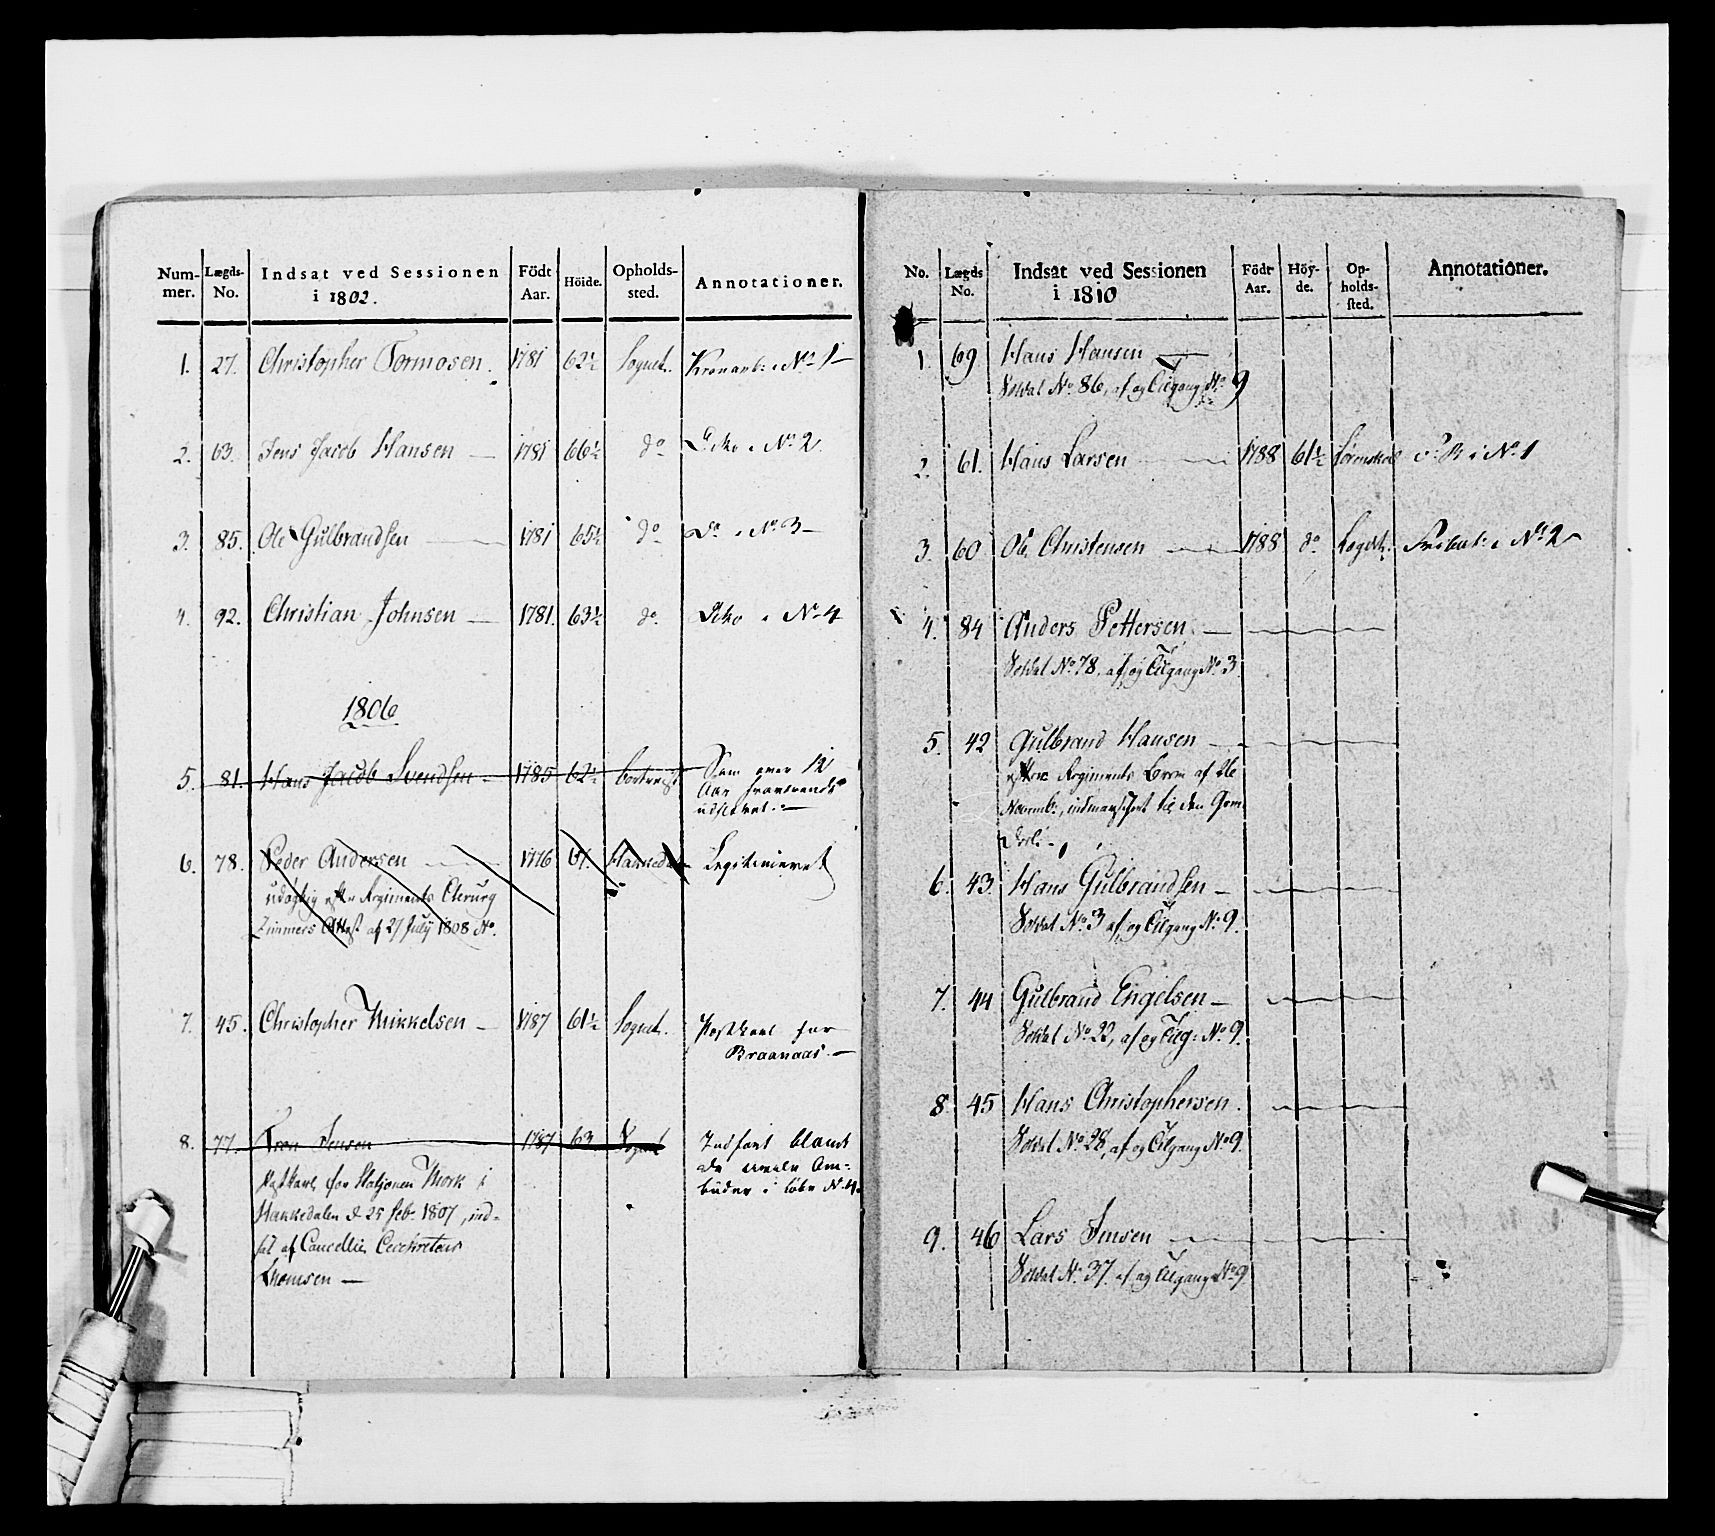 Num-
mer.
Lægds-
No.
Indsat ved Sessionen
i 1802.
Födt
Aar.
Höide.
Opholds-
sted.
Annotationer.
1. 27. Christopher Tormosen. 1781 62½ Sognet. No 1
2. 63. Jens Jacob Hansen 1781 66½ do No 2
3. 85. Ole Gulbrandsen 1781 65½ do Do i No 3
4. 92. Christian Johnsen 1781. 63½ do No 4
1806
5. 81. Hans Jacob Svendsen 1785 62½ bortreist Som over 12
Aar fraværende
udslettet.
6. 78. Peder Andersen 1776 61. Hakkedal Legitimeret
udögtig efter Regiments Chirurg
Zimmers Attest af 27 July 1808
7. 45. Christopher Mikkelsen 1787 61½ Sognet. Postkarl for
Braanaas.
8. 77. Tron Jensen 1787 63 Sognet Indfört blant
Postkarl for Stationen Mork i
Hakkedalen d 25 Feb. 1807, ind-
sat af Cancellie
Thomsen
No.
Lægds
No.
Indsat ved Sessionen
i 1810
Födt
Aar.
Höy-
de.
Op-
holds-
sted.
Annotationer.
1. 69 Hans Hansen
Soldat No 86, af og Tilgang No 9
2. 61. Hans Larsen 1788 61½ i No 1
3. 60 Ole Christensen 1788 do i No 2
4. 84 Anders Pettersen
Soldat No 78, af og Tilgang No 3
5. 42 Gulbrand Hansen
efter Regiments Brev af 26
6. 43. Hans Gulbrandsen
Soldat No 3 af og Tilgang No 9.
7. 44 Gulbrand Engelsen
Soldat No 22, af og Tilg: No 9.
8. 45 Hans Christophersen.
Soldat No 28, af og Tilgang No 9.
9. 46 Lars Jensen
Soldat No 37. af og Tilgang No 9